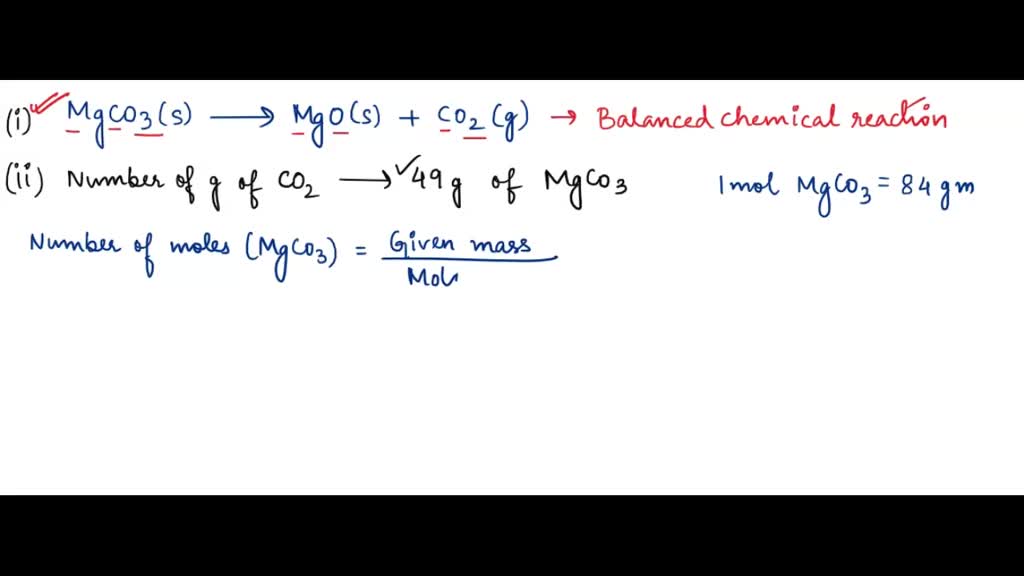 (i) MgCO3(s) → MgO(s) + CO2(g) → Balanced chemical reaction
(ii) Number of g of CO2 → 49g of MgCO3 1mol MgCO3 = 84gm
Number of moles (MgCO3) = Given mass
Mol